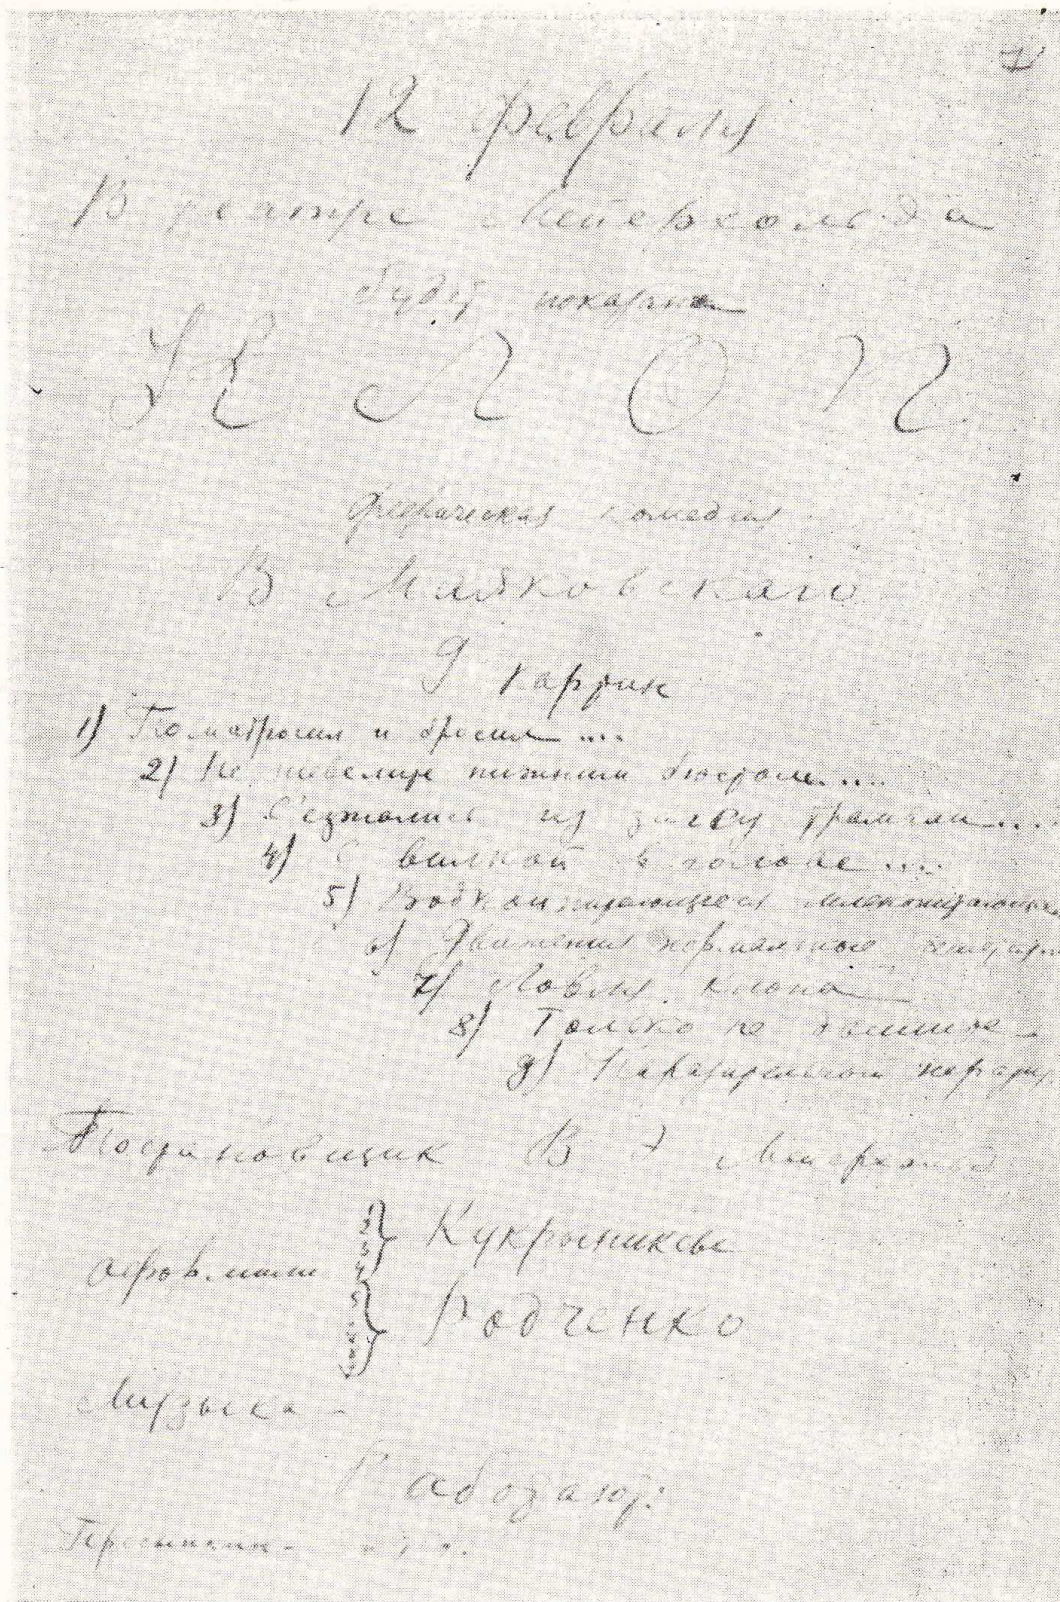 1
12 февраля
В театре Мейерхольда
будет показана
КЛОП
феерическая комедия
В Маяковского
9 картин
1) Поматросил и бросил ....
2) Не шевелите нижним бюстом....
3) С'езжались из загсу трамваи....
4) С вилкой в голове ....
5) Водкой питающееся млекопитающее
6) Движения нормальные
7) Ловля клопа
8) Только не дышите
9)
Постановщик В Э Мейерхольд
1
2
3
4
Кукрыниксы
оформили
5
Родченко
Музыка -
Работают:
Присыпкин -